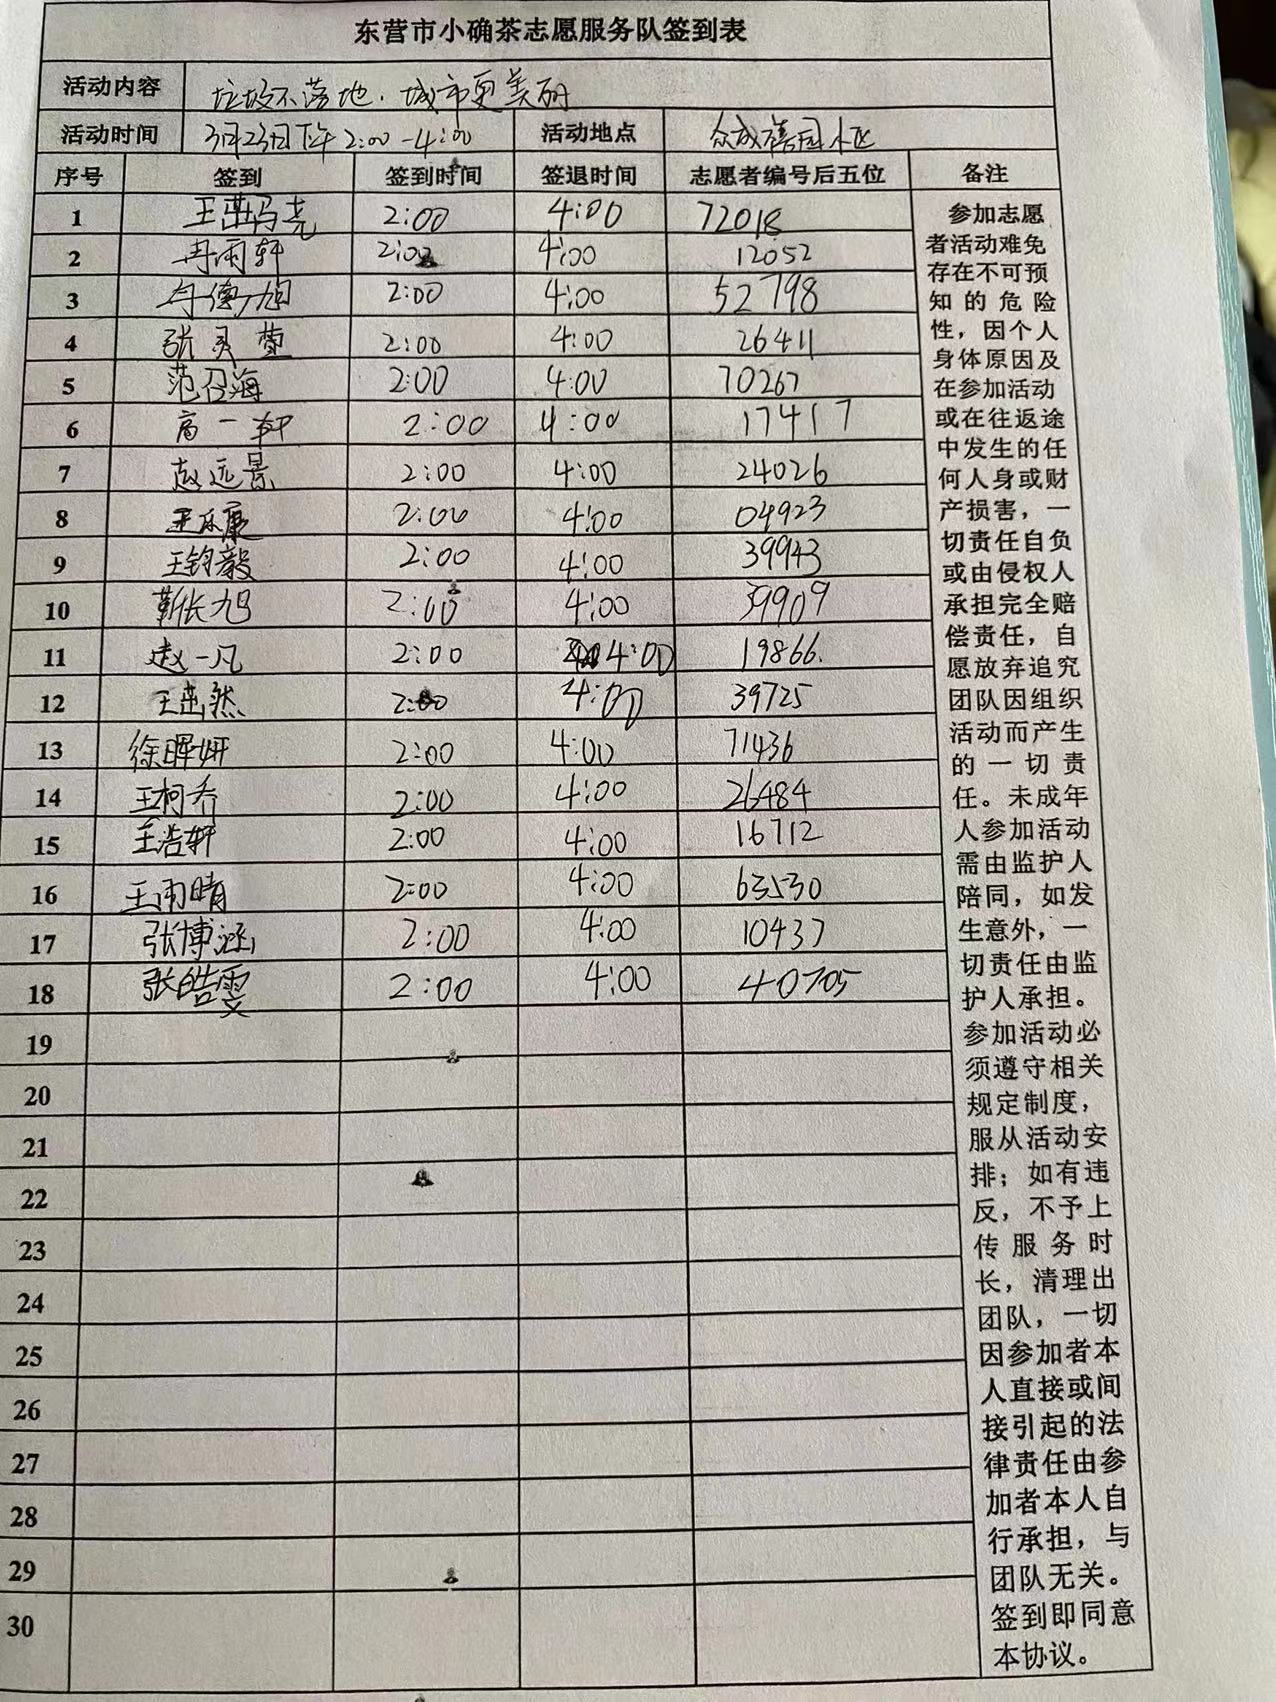 东营市小确茶志愿服务队签到表
活动内容 垃圾不落地.城市更美丽
活动时间 3月23日下午2:00-4:00 活动地点 众成 园小区
序号 签到 签到时间 签退时间 志愿者编号后五位 备注
1 2:00 4:00 72018
2 冉雨轩 2:00 4:00 12052
3 2:00 4:00 52798
4 张灵萱 2:00 4:00 26411
5 范召海 2:00 4:00 70267
6 高一轩 2:00 4:00 17417
7 赵远景 2:00 4:00 24026
8 2:00 4:00 04923
9 王钧毅 2:00 4:00 39943
10 靳长旭 2:00 4:00 39909
11 赵一凡 2:00 4:00 19866.
12 2:00 4:00 39725
13 徐晖妍 2:00 4:00 71436
14 王柯乔 2:00 4:00 26484
15 王浩轩 2:00 4:00 16712
16 王雨晴 2:00 4:00 63530
17 张博涵 2:00 4:00 10437
18 张皓雯 2:00 4:00 40705
19
20
21
22
23
24
25
26
27
28
29
30
参加志愿
者活动难免
存在不可预
知的危险
性，因个人
身体原因及
在参加活动
或在往返途
中发生的任
何人身或财
产损害，一
切责任自负
或由侵权人
承担完全赔
偿责任，自
愿放弃追究
团队因组织
活动而产生
的一切责
任。未成年
人参加活动
需由监护人
陪同，如发
生意外，一
切责任由监
护人承担。
参加活动必
须遵守相关
规定制度，
服从活动安
排；如有违
反，不予上
传服务时
长，清理出
团队，一切
因参加者本
人直接或间
接引起的法
律责任由参
加者本人自
行承担，与
团队无关。
签到即同意
本协议。